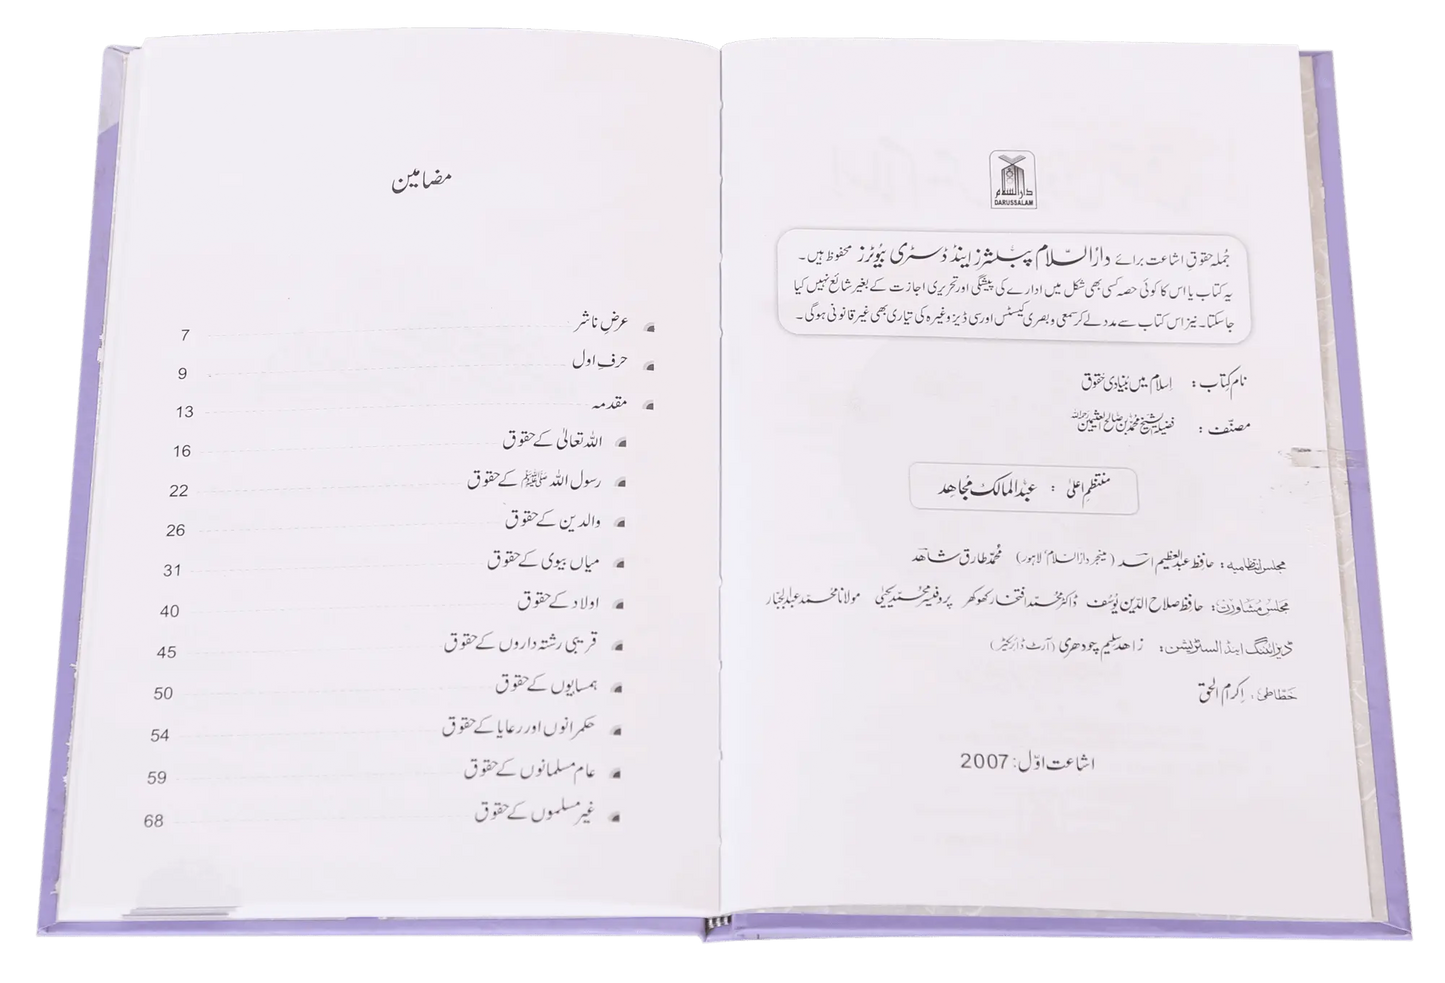 دارالسلام
DARUSSALAM
جُملہ حقوقِ اشاعت برائے دارُالسّلام پبلشرز اینڈ ڈسٹری بیُوٹرز محفوظ ہیں۔
یہ کتاب یا اس کا کوئی حصہ کسی بھی شکل میں ادارے کی پیشگی اور تحریری اجازت کے بغیر شائع نہیں کیا
جاسکتا۔ نیز اس کتاب سے مدد لے کر سمعی و بصری کیسٹس اور سی ڈیز وغیرہ کی تیاری بھی غیر قانونی ہوگی۔
نام کتاب : اِسلام میں بُنیادی حقوق
مصنّف : فضیلۃ الشیخ محمّد بن صالح العثیمین رحمہ اللہ
منتظمِ اعلیٰ : عبدُالمالک مُجاہد
مجلسِ انتظامیہ : حافظ عبدالعظیم اسد (مینجر دارُالسّلام، لاہور) محمّد طارق شاہد
مجلسِ مشاورت : حافظ صلاح الدّین یُوسف ڈاکٹر محمّد افتخار کھوکھر پروفیسر محمّد یحیٰی مولانا محمّد عبدالجبّار
ڈیزائننگ اینڈ السٹریشن : زاہد سلیم چودھری (آرٹ ڈائریکٹر)
خطاطی : اِکرامُ الحق
اشاعت اوّل : 2007
مضامین
عرضِ ناشر 7
حرفِ اول 9
مقدمہ 13
اللہ تعالیٰ کے حقوق 16
رسول اللہ ﷺ کے حقوق 22
والدین کے حقوق 26
میاں بیوی کے حقوق 31
اولاد کے حقوق 40
قریبی رشتہ داروں کے حقوق 45
ہمسایوں کے حقوق 50
حکمرانوں اور رعایا کے حقوق 54
عام مسلمانوں کے حقوق 59
غیر مسلموں کے حقوق 68